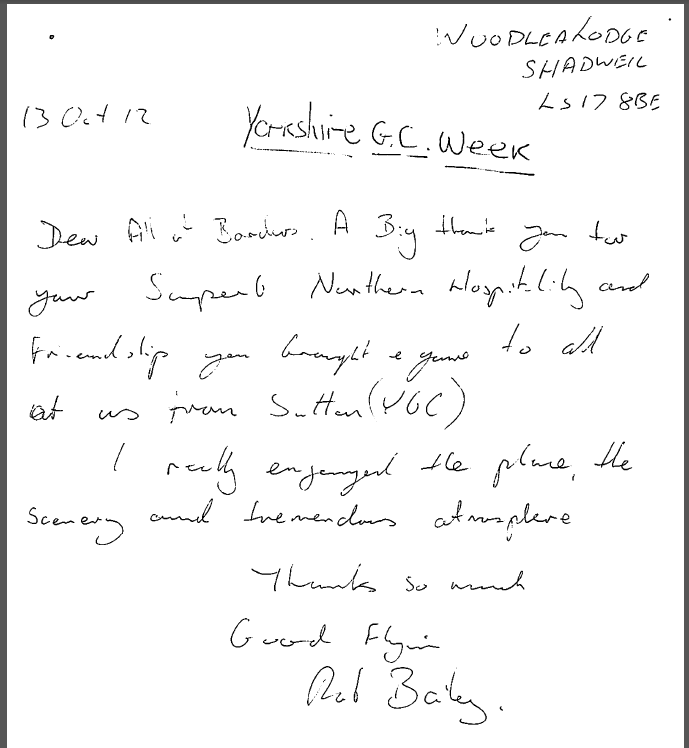 WOODLEA LODGE
SHADWELL
LS17 8BE
13 Oct 12
Yorkshire G.C. Week
Dear All at Borders. A Big thank you for
your Superb Northern Hospitality and
Friendship you brought & gave to all
at us from Sutton (YGC)
I really enjoyed the place, the
Scenery and tremendous atmosphere
Thanks so much
Good Flyin
Rob Bailey.